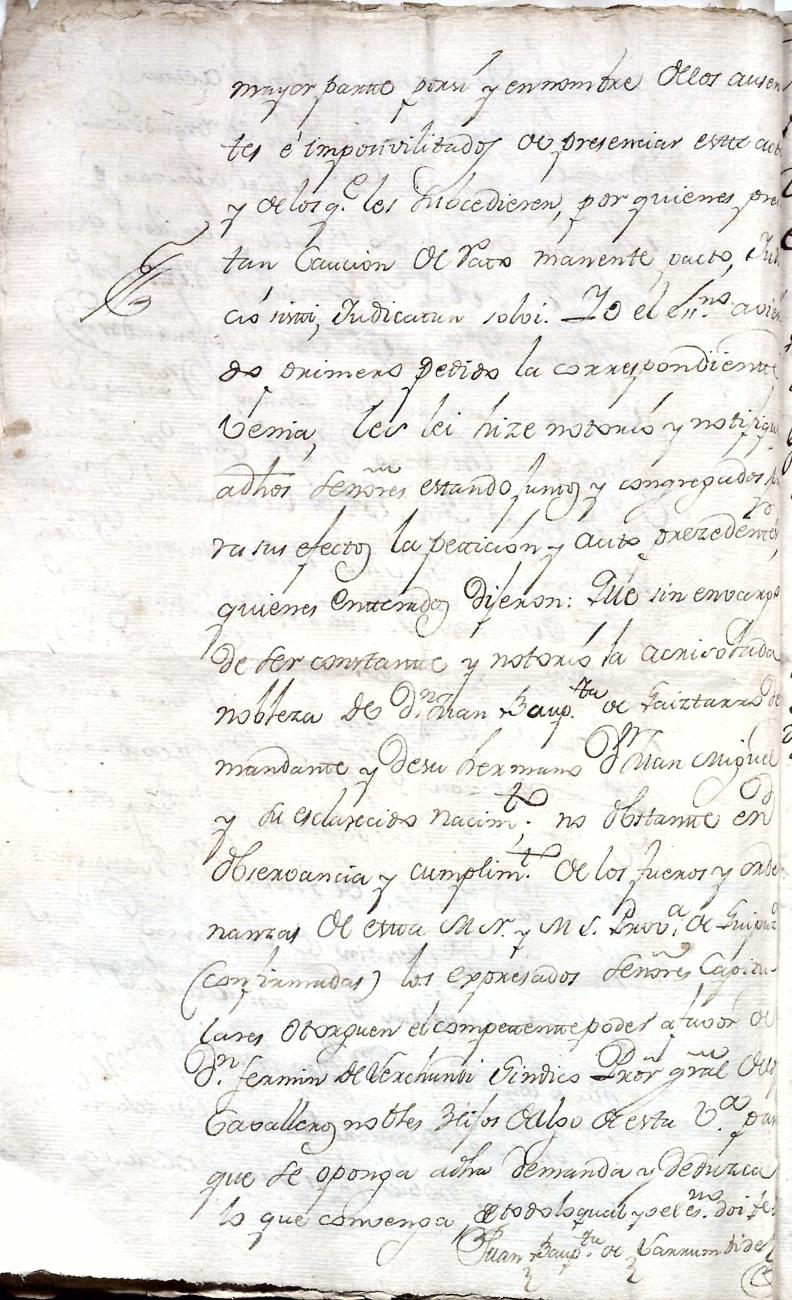 mayor parte por si y en nombre de los ausen
tes é imposivilitados de presenciar este act
y de los q.e les subcedieren, por quienes pres
tan Caucion de rato manente pacto, Judi
cio sisti, Judicatun solvi. Yo el ess.no avien
do primero pedido la correspondiente
Venia, les lei hize notorio y notifiqu
adhos Señores estando juntos y congregados pa
ra sus efectos la peticion y auto prezedentes,
quienes enterados dijeron: Que sin envargo
de ser constante y notorio la acrisolada
nobleza de D.n Juan Baup.ta de Gaiztarro de
mandante y de su hermano D.n Juan Miguel
y su esclarecido nacim.to; no obstante en
observancia y cumplim.to de los fueros y orde
nanzas de esta M N. y M L. Prov.a de Guipuz.a
(confirmadas) los expresados Señores Capitu-
lares otorguen el competente poder a favor de
D.n Fermin de Verchundi Sindico Pror gral de
Cavalleros nobles Hijos dalgo de esta V.a para
que se oponga adha demanda y deduzca
lo que convenga, de todo lo qual yo el es.no doi fe
Juan Baup.ta de Larrumbide